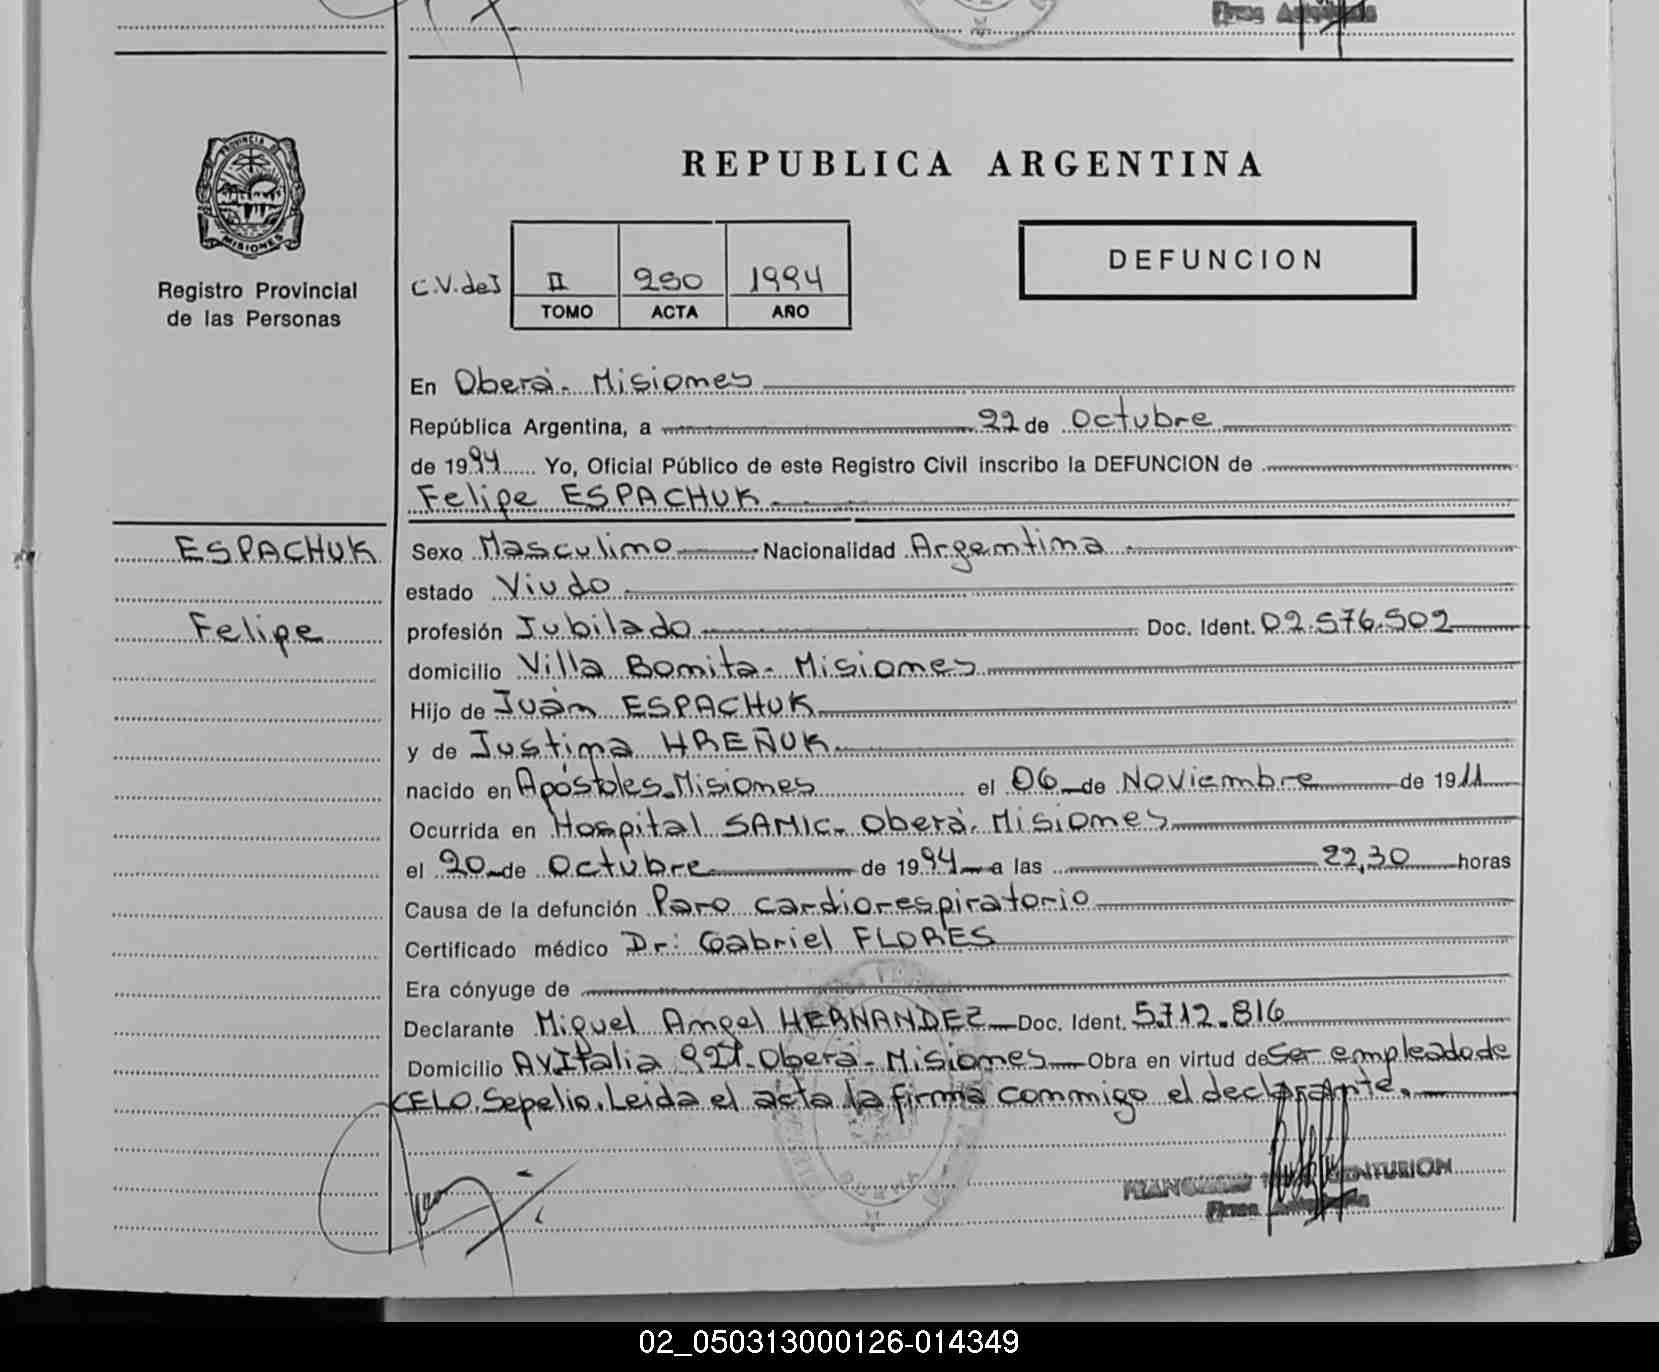 Firma Autorizada
PROVINCIA DE
MISIONES
Registro Provincial
de las Personas
REPUBLICA ARGENTINA
DEFUNCION
C.V.deI II 290 1994
TOMO ACTA AÑO
En Oberá - Misiones
República Argentina, a 22 de Octubre
de 1994 Yo, Oficial Público de este Registro Civil inscribo la DEFUNCION de
Felipe ESPACHUK
ESPACHUK
Felipe
Sexo Masculino Nacionalidad Argentina
estado Viudo
profesión Jubilado Doc. Ident. 02.576.502
domicilio Villa Bonita - Misiones
Hijo de Juán ESPACHUK
y de Justina HREÑUK
nacido en Apóstoles - Misiones el 06 de Noviembre de 1911
Ocurrida en Hospital SAMIC - Oberá - Misiones
el 20 de Octubre de 1994 a las 22,30 horas
Causa de la defunción Paro cardiorespiratorio
Certificado médico Dr: Gabriel FLORES
Era cónyuge de
Declarante Miguel Angel HERNANDEZ Doc. Ident. 5.712.816
Domicilio Av Italia 927 - Oberá - Misiones Obra en virtud de Ser empleado de
CELO. Sepelio. Leida el acta la firma conmigo el declarante.
CENTURION
Firma Autorizada
02_050313000126-014349